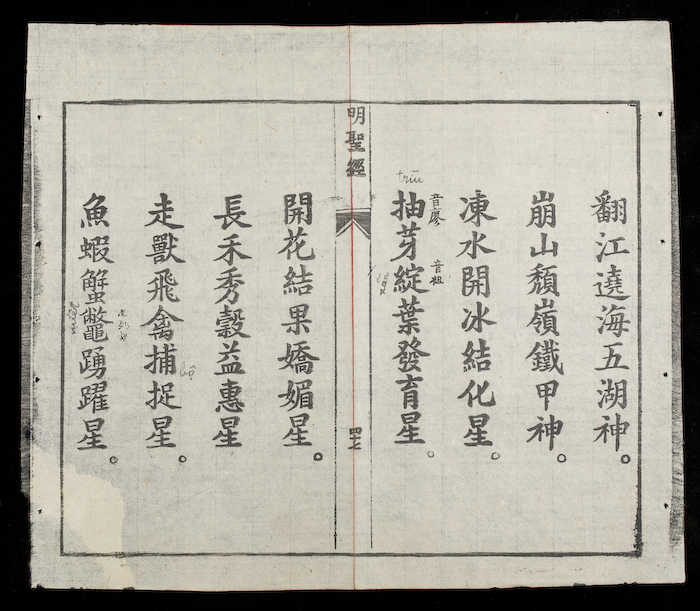 翻江遶海五湖神。
崩山頹嶺鐵甲神。
凍水開冰結化星。
抽芽綻葉發育星。
音廖
音祖
trừu
明聖經
四十七
開花結果嬌媚星。
長禾秀穀益惠星
走獸飛禽捕捉星。
bộ
魚蝦蟹鼈踴躍星。